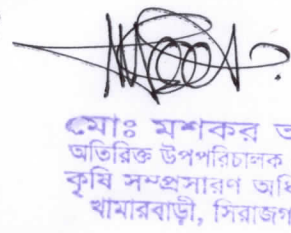 মোঃ মশকর
অতিরিক্ত উপপরিচালক
কৃষি সম্প্রসারণ অধি
খামারবাড়ী, সিরাজগ